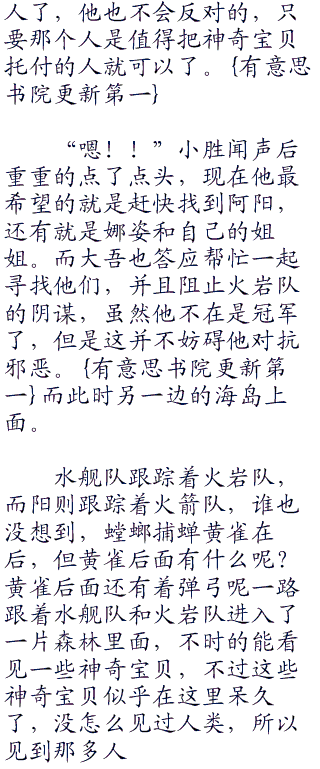 人了，他也不会反对的，只
要那个人是值得把神奇宝贝
托付的人就可以了。{有意思
书院更新第一}
“嗯！！”小胜闻声后
重重的点了点头，现在他最
希望的就是赶快找到阿阳，
还有就是娜姿和自己的姐
姐。而大吾也答应帮忙一起
寻找他们，并且阻止火岩队
的阴谋，虽然他不在是冠军
了，但是这并不妨碍他对抗
邪恶。{有意思书院更新第
一}而此时另一边的海岛上
面。
水舰队跟踪着火岩队，
而阳则跟踪着火箭队，谁也
没想到，螳螂捕蝉黄雀在
后，但黄雀后面有什么呢？
黄雀后面还有着弹弓呢一路
跟着水舰队和火岩队进入了
一片森林里面，不时的能看
见一些神奇宝贝，不过这些
神奇宝贝似乎在这里呆久
了，没怎么见过人类，所以
见到那多人